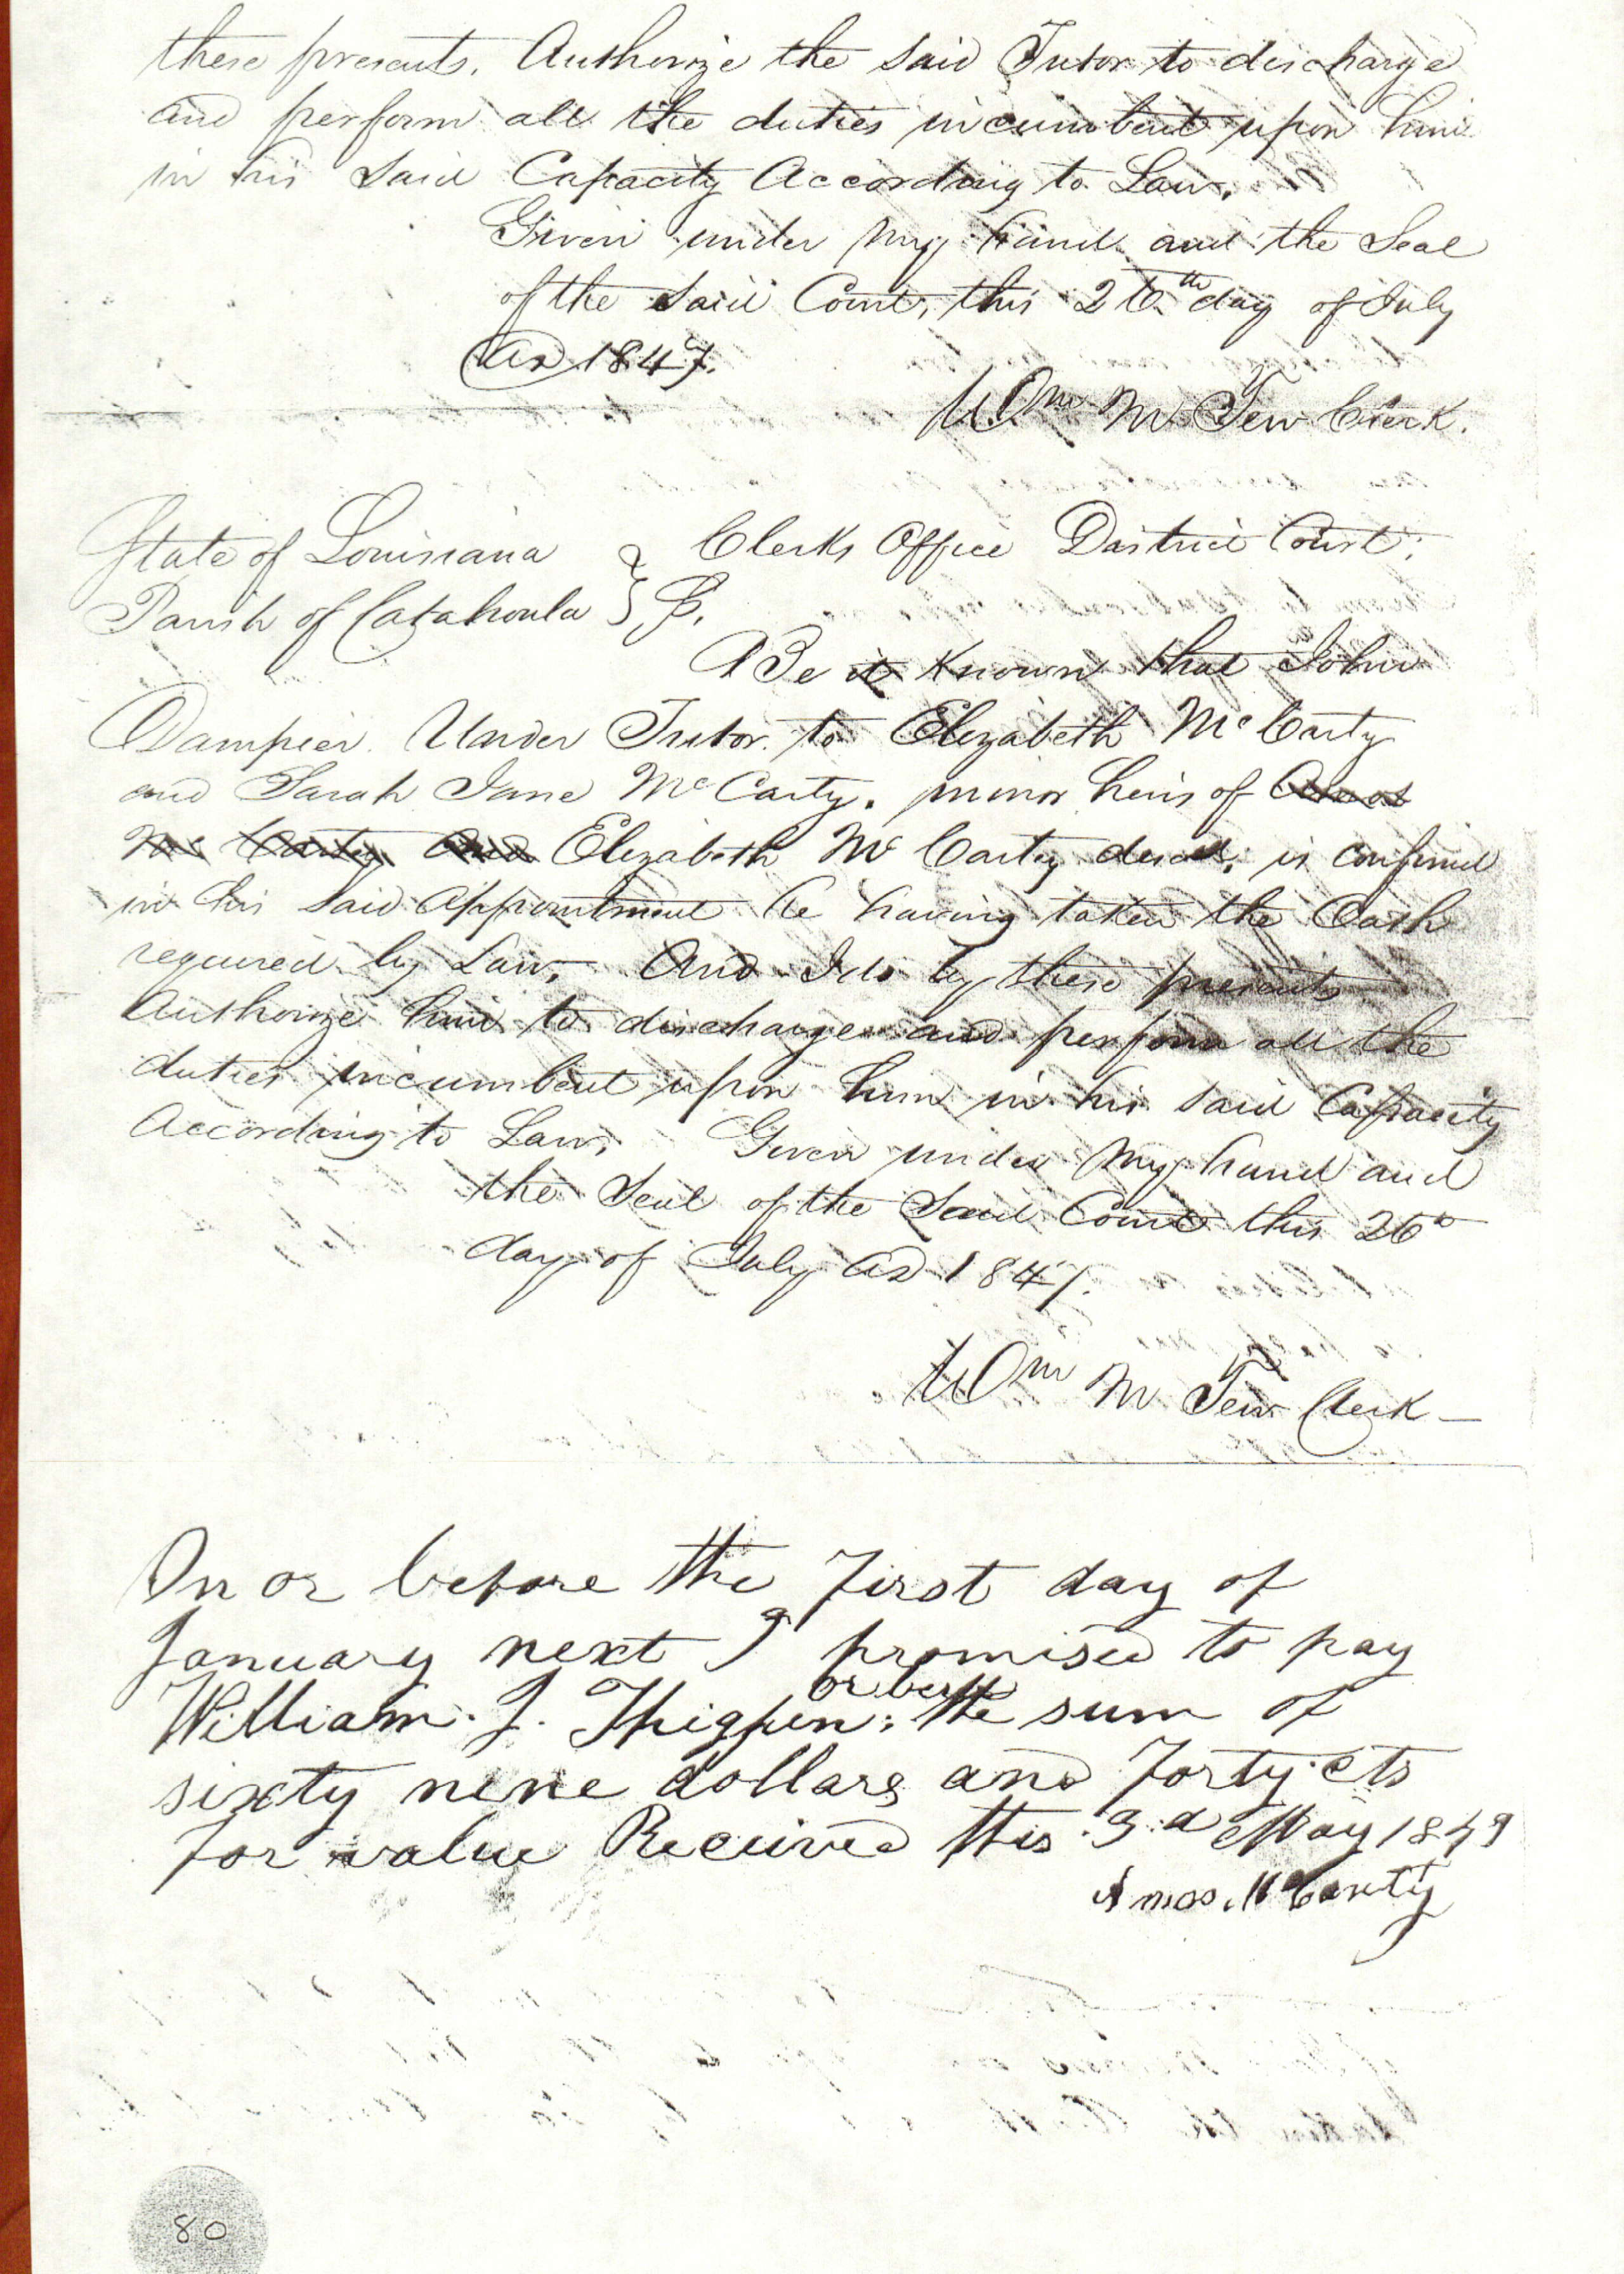 these presents. Authorize the said Tutor to discharge
and perform all the duties incumbent upon him
in his said Capacity According to Law,
Given under my hand and the Seal
of the said Court, this 26th day of July
AD 1847.
Wm M Tew Clerk.
State of Louisiana } Clerks Office District Court;
Parish of Catahoula } SS.
Be it Known that John
Dampier. Under Tutor to Elizabeth McCarty
and Sarah Jane McCarty. minor heirs of Amos
McCarty and Elizabeth McCarty decd, is confirmed
in his said appointment he having taken the Oath
required by Law, And I do by these presents
Authorize him to discharge and perform all the
duties incumbent upon him in his said Capacity
According to Law, Given under my hand and
the Seal of the Said Court this 26th
day of July AD 1847.
Wm M Tew Clerk
On or before the First day of
January next I promised to pay
William. J. Thigpen; or ber the sum of
sixty nine dollars and Forty cts
For value Received this 3d May 1849
Amos McCarty
80